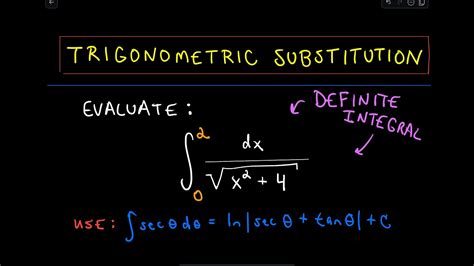 TRIGONOMETRIC SUBSTITUTION
EVALUATE: DEFINITE INTEGRAL
∫₀² dx / √(x² + 4)
USE: ∫secθdθ = ln|secθ + tanθ| + C